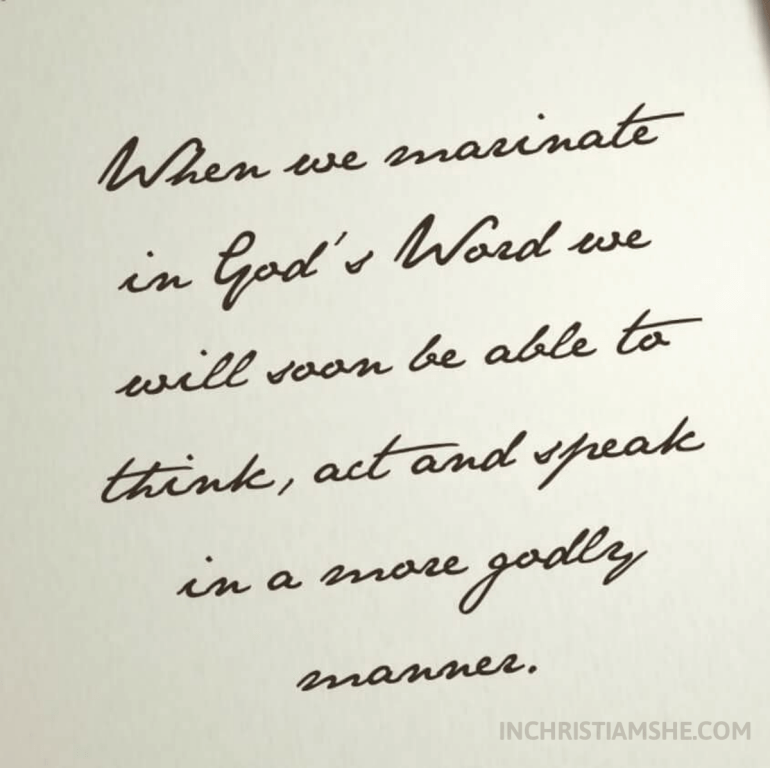 When we marinate
in God's Word we
will soon be able to
think, act and speak
in a more godly
manner.
INCHRISTIAMSHE.COM